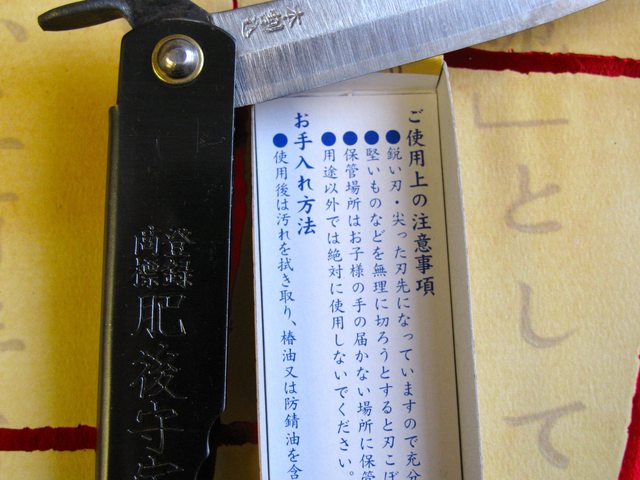 登録
商標
肥後守定
ご使用上の注意事項
●鋭い刃・尖った刃先になっていますので充分
●堅いものなどを無理に切ろうとすると刃こぼ
●保管場所はお子様の手の届かない場所に保管
●用途以外では絶対に使用しないでください。
お手入れ方法
●使用後は汚れを拭き取り、椿油又は防錆油を含
」として